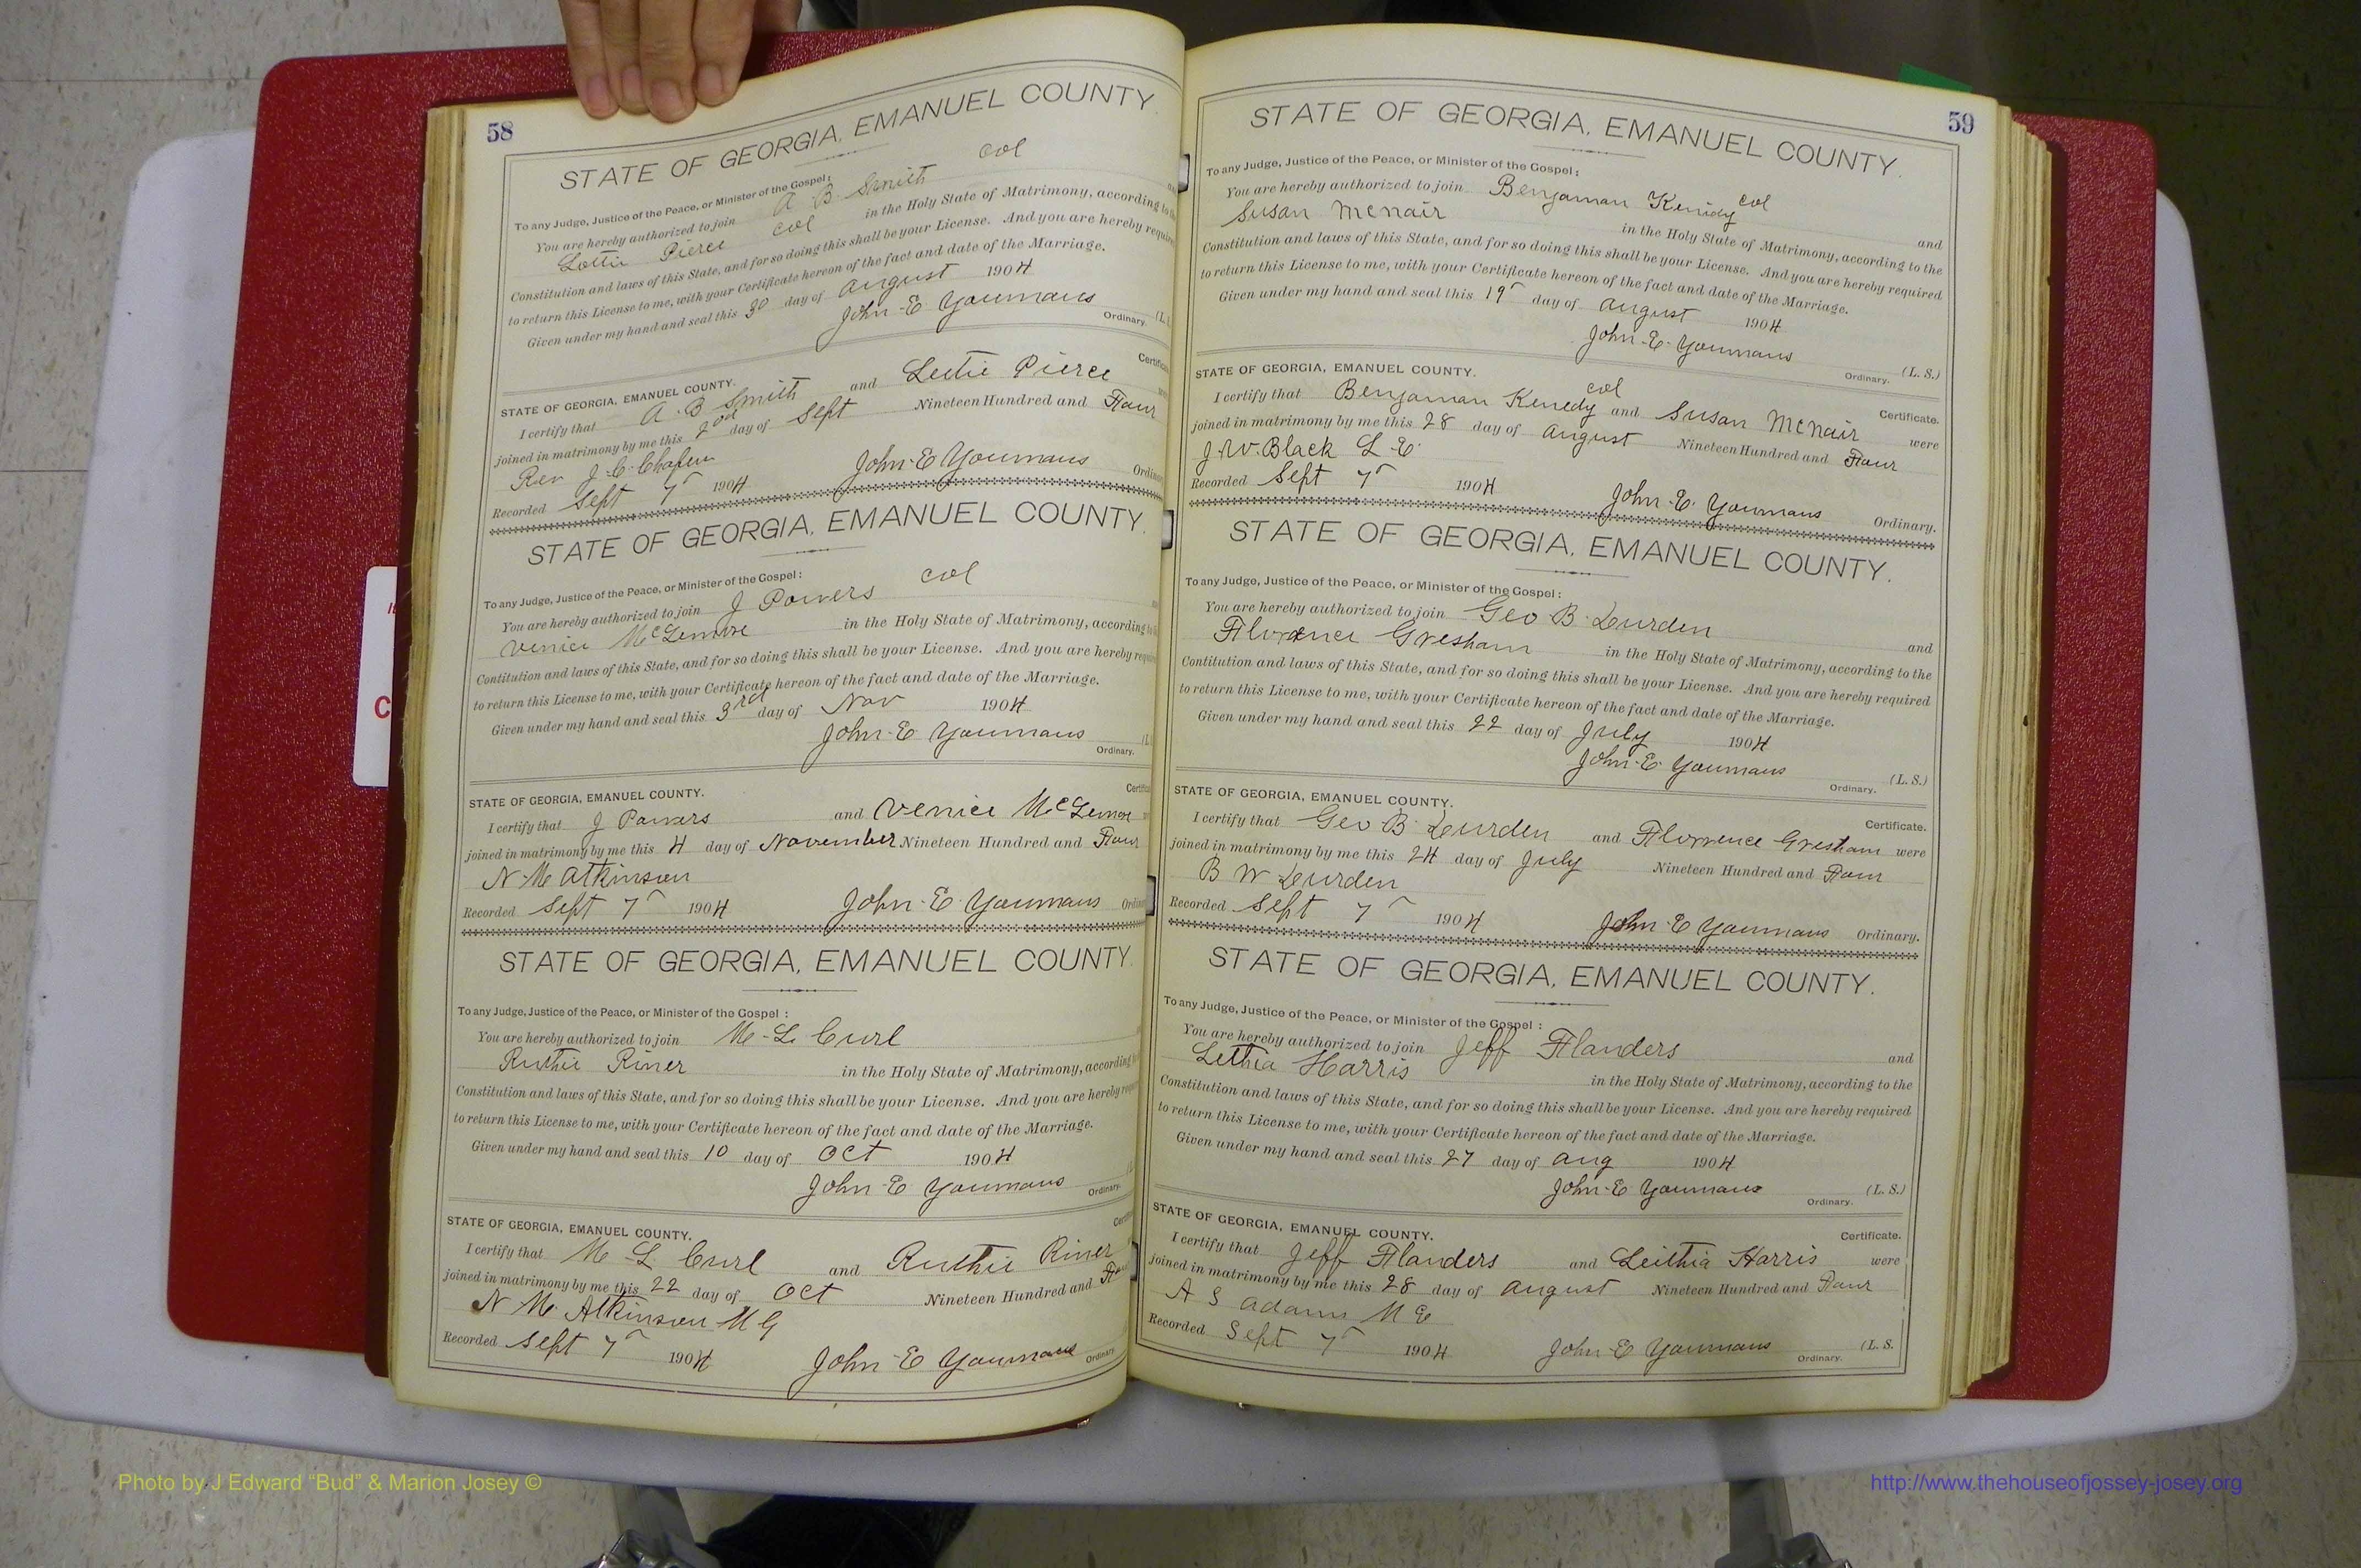 58
STATE OF GEORGIA, EMANUEL COUNTY
To any Judge, Justice of the Peace, or Minister of the Gospel:
You are hereby authorized to join A B Smith col
Lottie Pierce col in the Holy State of Matrimony, according to the
Constitution and laws of this State, and for so doing this shall be your License. And you are hereby required
to return this License to me, with your Certificate hereon of the fact and date of the Marriage.
Given under my hand and seal this 30 day of august 1904
John E Youmans (L.
Ordinary.
STATE OF GEORGIA, EMANUEL COUNTY. Certific
I certify that A. B Smith and Lectie Pierce
joined in matrimony by me this 2nd day of Sept Nineteen Hundred and Four
Rev J. C.
Recorded Sept 7 1904 John E Youmans Ordinar
STATE OF GEORGIA, EMANUEL COUNTY.
To any Judge, Justice of the Peace, or Minister of the Gospel:
You are hereby authorized to join J Powers col
Venice McLemore in the Holy State of Matrimony, according to
Contitution and laws of this State, and for so doing this shall be your License. And you are hereby requ
to return this License to me, with your Certificate hereon of the fact and date of the Marriage.
Given under my hand and seal this 3rd day of Nov 1904
John E Youmans (L
Ordinary.
STATE OF GEORGIA, EMANUEL COUNTY. Certific
I certify that J Powers and Venice McLemore
joined in matrimony by me this 4 day of November Nineteen Hundred and Four
N M Atkinson
Recorded Sept 7 1904 John E Youmans Ordinar
STATE OF GEORGIA, EMANUEL COUNTY.
To any Judge, Justice of the Peace, or Minister of the Gospel:
You are hereby authorized to join M L Curl
Ruthie Riner in the Holy State of Matrimony, according
Constitution and laws of this State, and for so doing this shall be your License. And you are hereby requ
to return this License to me, with your Certificate hereon of the fact and date of the Marriage.
Given under my hand and seal this 10 day of Oct 1904
John E Youmans
Ordinary.
STATE OF GEORGIA, EMANUEL COUNTY. Certif
I certify that M L Curl and Ruthie Riner
joined in matrimony by me this 22 day of Oct Nineteen Hundred and Fou
N M Atkinson M G
Recorded Sept 7 1904 John E Youmans Ordinary
59
STATE OF GEORGIA, EMANUEL COUNTY.
To any Judge, Justice of the Peace, or Minister of the Gospel:
You are hereby authorized to join Benjaman Kenidy col and
Susan McNair in the Holy State of Matrimony, according to the
Constitution and laws of this State, and for so doing this shall be your License. And you are hereby required
to return this License to me, with your Certificate hereon of the fact and date of the Marriage.
Given under my hand and seal this 19 day of august 1904
John E. Youmans (L. S.)
Ordinary.
STATE OF GEORGIA, EMANUEL COUNTY. Certificate.
I certify that Benjaman Kenedy col and Susan McNair were
joined in matrimony by me this 28 day of august Nineteen Hundred and Four
J. W. Black L. E.
Recorded Sept 7 1904 John E. Youmans Ordinary.
STATE OF GEORGIA, EMANUEL COUNTY.
To any Judge, Justice of the Peace, or Minister of the Gospel:
You are hereby authorized to join Geo B. Durden and
Florence Gresham in the Holy State of Matrimony, according to the
Contitution and laws of this State, and for so doing this shall be your License. And you are hereby required
to return this License to me, with your Certificate hereon of the fact and date of the Marriage.
Given under my hand and seal this 22 day of July 1904
John E. Youmans (L. S.)
Ordinary.
STATE OF GEORGIA, EMANUEL COUNTY. Certificate.
I certify that Geo B Durden and Florrence Gresham were
joined in matrimony by me this 24 day of July Nineteen Hundred and Four
B W Durden
Recorded Sept 7 1904 John E Youmans Ordinary.
STATE OF GEORGIA, EMANUEL COUNTY.
To any Judge, Justice of the Peace, or Minister of the Gospel:
You are hereby authorized to join Jeff Flanders and
Lethia Harris in the Holy State of Matrimony, according to the
Constitution and laws of this State, and for so doing this shall be your License. And you are hereby required
to return this License to me, with your Certificate hereon of the fact and date of the Marriage.
Given under my hand and seal this 27 day of aug 1904
John E Youmans (L. S.)
Ordinary.
STATE OF GEORGIA, EMANUEL COUNTY. Certificate.
I certify that Jeff Flanders and Leithia Harris were
joined in matrimony by me this 28 day of august Nineteen Hundred and Four
A S adams M E
Recorded Sept 7 1904 John E Youmans (L. S.
Ordinary.
Photo by J Edward “Bud” & Marion Josey ©
http://www.thehouseofjossey-josey.org